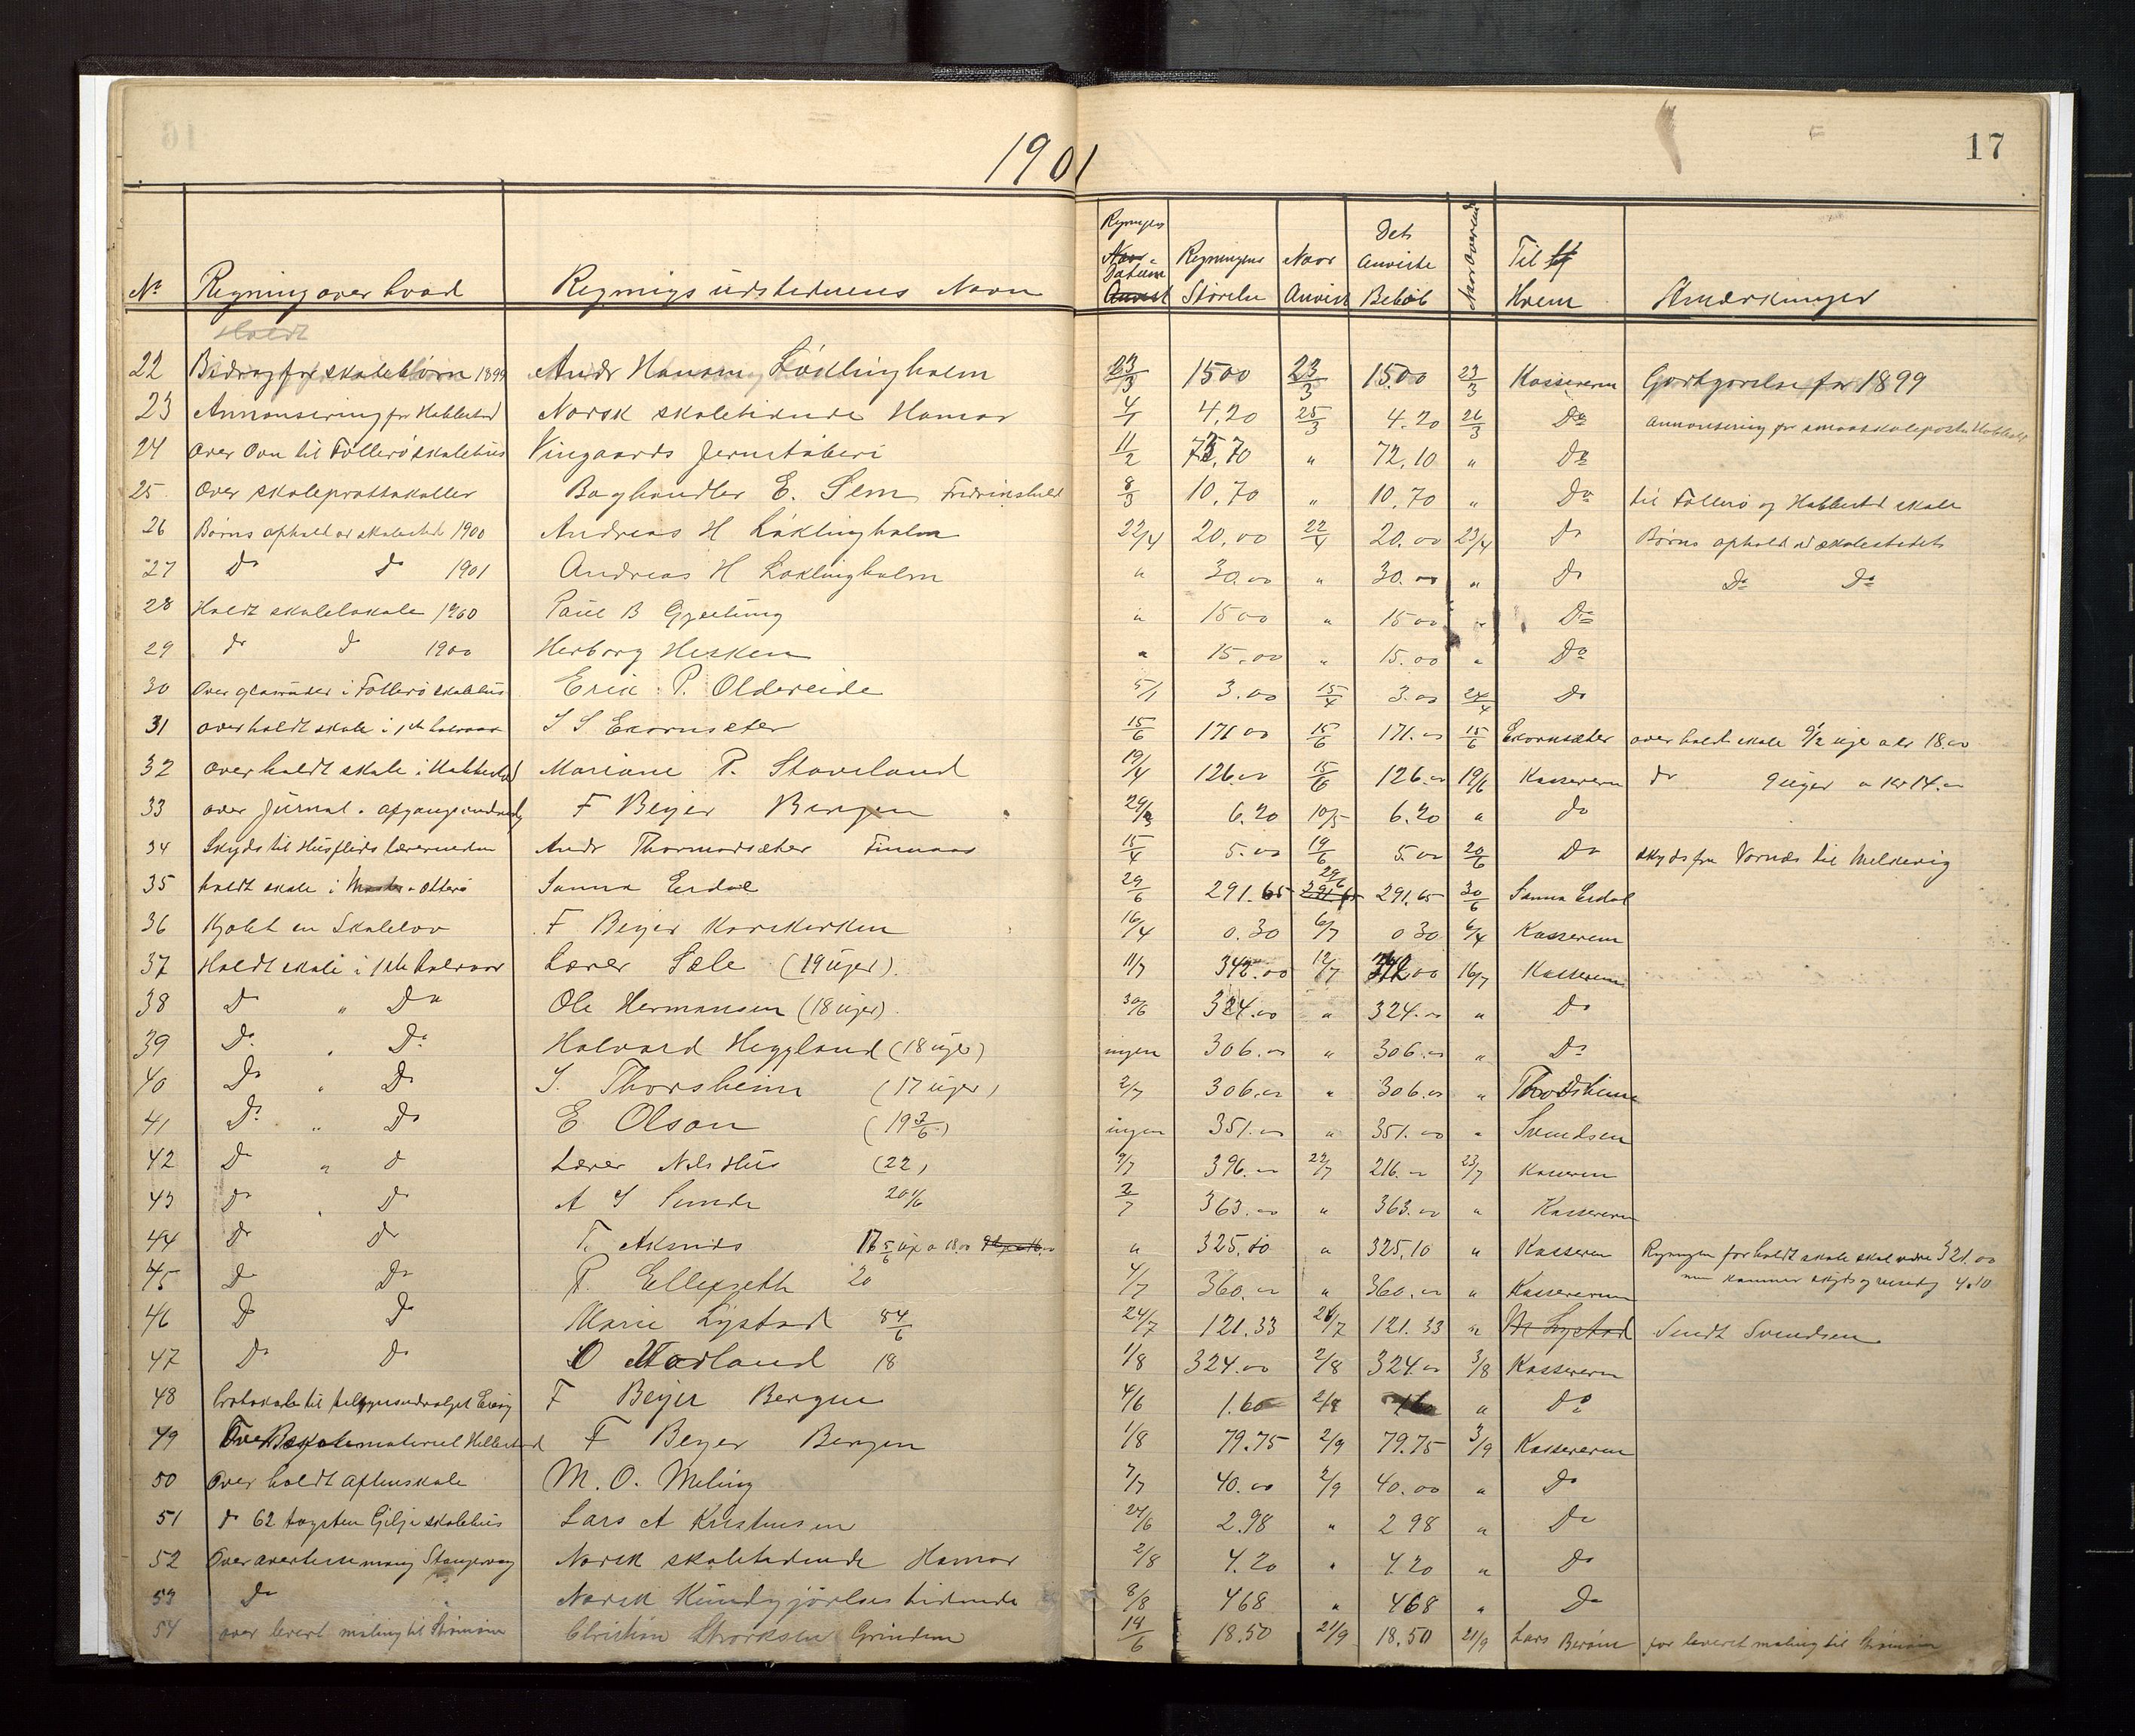 1901
17
No Regning over hvad Regnigs udstederens Navn Regningens Datum Regningens Störelse Naar Anvist Det Anviste Belöb Naar Oversend Til Hvem Anmærkninger
Holdt
22 Bidrag for skolebörn 1899 Andr Hansen Löklingholm 23/3 15 00 23/3 15.00 23/3 Kassereren Godtgörelse for 1899
23 Annonsering for Habbestad Norsk skoletidende Hamar 4/1 4,20 25/3 4.20 26/3 Do Annonsering for smaaskolepost Habbestad
24 Over Ovn til Folleröskolehus Vingaards Jernstöberi 11/2 72,70 " 72,10 " Do
25 Over skoleprottokoller Boghandler E. Sem Fredrikshald 8/3 10,70 " 10,70 " Do til Follerö og Habbestad skole
26 Börns ophold ved skolested 1900 Andreas H Löklingholm 22/4 20,00 22/4 20.00 23/4 Do Börns ophold ved skolestedet
27 Do Do 1901 Andreas H Löklingholm " 30.00 " 30.00 " Do Do Do
28 Holdt skolelokale 1900 Paul B Gjerting " 15 00 " 15 00 " Do
29 do d 1900 Herborg Hesken " 15.00 " 15.00 " Do
30 Over glasruder i Follerö skolehus Erik P. Oldereide 5/1 3.00 15/4 3.00 24/4 Do
31 over holdt skole i 1ste halvaar S S Ekornsæter 15/6 171 00 15/6 171.00 15/6 Ekornsæter over holdt skole 9 1/2 uge a kr 18.00
32 over holdt skole i Habbestad Mariane P. Staveland 19/4 126.00 15/6 126.00 19/6 Kassereren do 9 uger a kr 14.00
33 over Jurnal. F Beyer Bergen 6.20 10/5 6.20 " do
34 Skyds til Husflids lærerinden Andr Thormodsæter Finnaas 15/4 5.00 19/6 5.00 20/6 Do skyds fra Vornæs til Melkevig
35 holdt skole i Otterö Sanna Erdal 29/6 291.65 29/6 291.65 30/6 Sanna Erdal
36 Kjöbt en Skolelov F Beyer Korskirken 16/4 0.30 6/7 0 30 6/4 Kassereren
37 Holdt skole i 1ste halvaar Lærer Sæle (19 uger). 11/7 342.00 12/7 342.00 16/7 Kassereren
38 Do " Do Ole Hermansen (18 uger). 30/6 324.00 " 324.00 " Do
39 Do " Do Halvard Heggland (18 uger) ingen 306.00 " 306.00 " Do
40 Do " Do S. Thorsheim (17 uger) 2/7 306.00 " 306.00 " Thorsheim
41 Do " Do E Olson (19 3/6) ingen 351.00 " 351.00 " Svendsen
42 Do " d Lærer Nils Hus (22) 9/7 396.00 22/7 216.00 23/7 Kasseren
43 Do " Do A S Sunde 20 1/6 2/7 363.00 " 363.00 " Kassereren
44 Do Do T. Aksnæs 17 5/6 uge a 18.00 " 325.10 " 325,10 " Kasseren Regningen for holdt skole skal være 321.00
men kommer skyds og 4.10
45 Do Do P. Ellepzeth 20 4/7 360.00 " 360.00 " Kassereren
46 Do Do Marie Lystad 54/6 24/7 121.33 26/7 121.33 " M Lystad Sendt Svendsen
47 Do Do O Marland 18 1/8 324.00 2/8 324.00 3/8 Kassereren
48 Protokoller til F Beyer Bergen 4/6 1.60 " Do
49 Over skolemateriel Habbestad F Beyer Bergen 1/8 79.75 2/9 79.75 3/9 Kassereren
50 Over holdt aftenskole M. O. Meling 7/7 40.00 2/9 40.00 " Do
51 do 62 tagsten Gilje skolehus Lars A Kristensen 24/6 2.98 " 2 98 " Do
52 Over Norsk skoletidende Hamar 2/8 4.20 " 4.20 " Do
53 Do Norsk Kundgjörelses tidende 8/8 4 68 " 4 68 " Do
54 over levert maling til Christian Grinden 14/6 18.50 21/9 18.50 21/9 Lars for leveret maling til